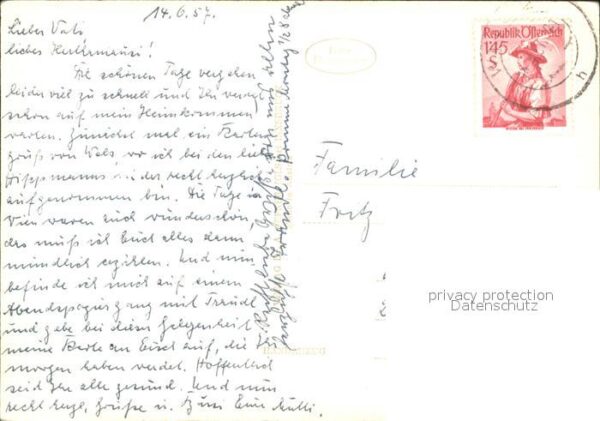 14.6.57.
Lieber Vati,
liebes Herlimausi!
Die schönen Tage vergehen
leider viel zu schnell und Ihr werdet
schon auf mein Heimkommen
warten. Zunächst mal ein Karten
gruß von Wels, wo ich bei den lieben
Hippmanns wieder recht herzlich
aufgenommen bin. Die Tage in
Wien waren auch wunderschön,
das muß ich Euch alles dann
mündlich erzählen. Und nun
befinde ich mich auf einem
Abendspaziergang mit Traudl
und gebe bei dieser Gelegenheit
meine Karte an Euch auf, die Ihr
morgen haben werdet. Hoffentlich
seid Ihr alle gesund. Und nun
recht herzl. Grüße u. Bussi Eure Mutti.
Herzliche Grüße
Traudl.
Komme Montag
Familie
Fritz
Republik Österreich
1'45
S
h
privacy protection
Datenschutz